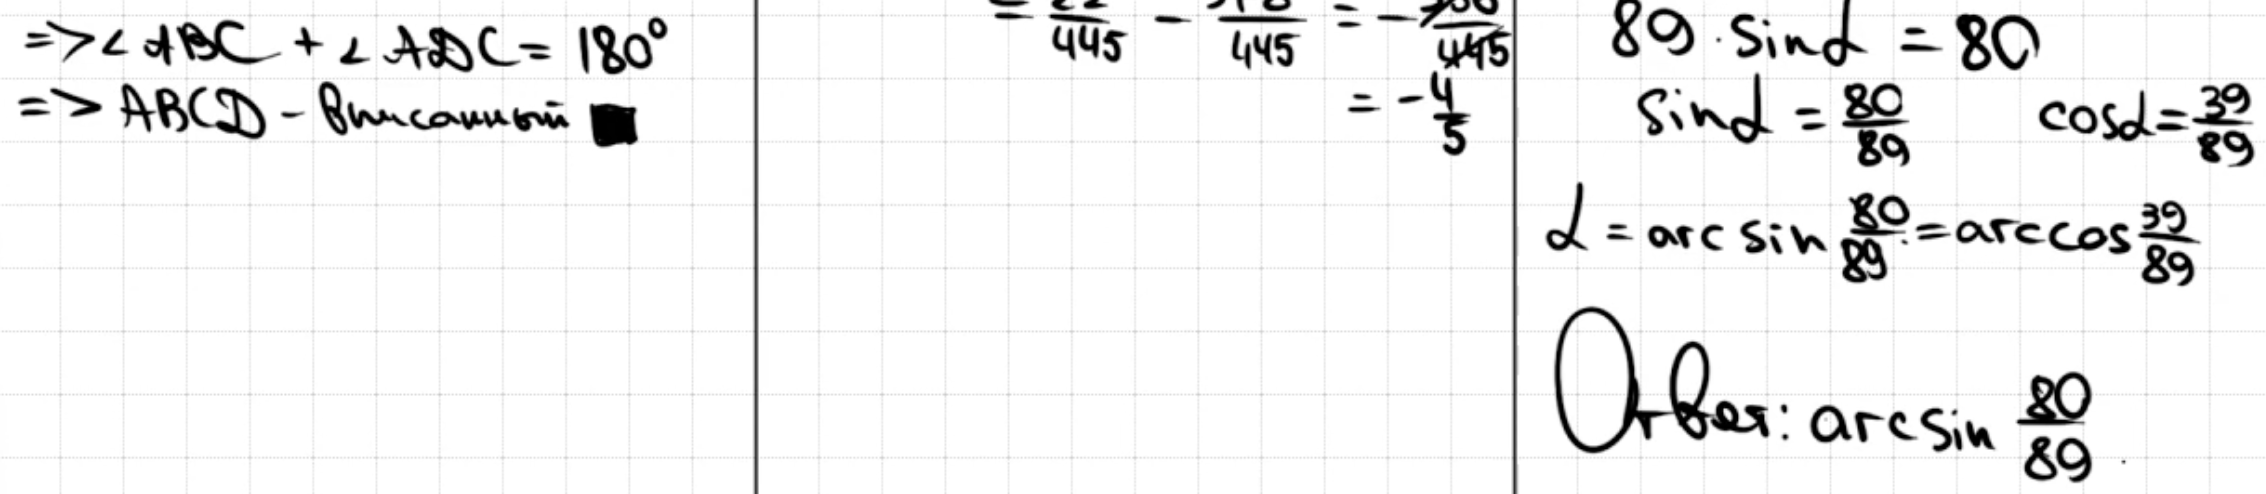 => ∠ABC + ∠ADC = 180°
=> ABCD - Вписанный ■
= 22/445 - 378/445 = - 356/445
= - 4/5
89 · sinα = 80
sinα = 80/89 cosα = 39/89
α = arcsin 80/89 = arccos 39/89
Ответ: arcsin 80/89.